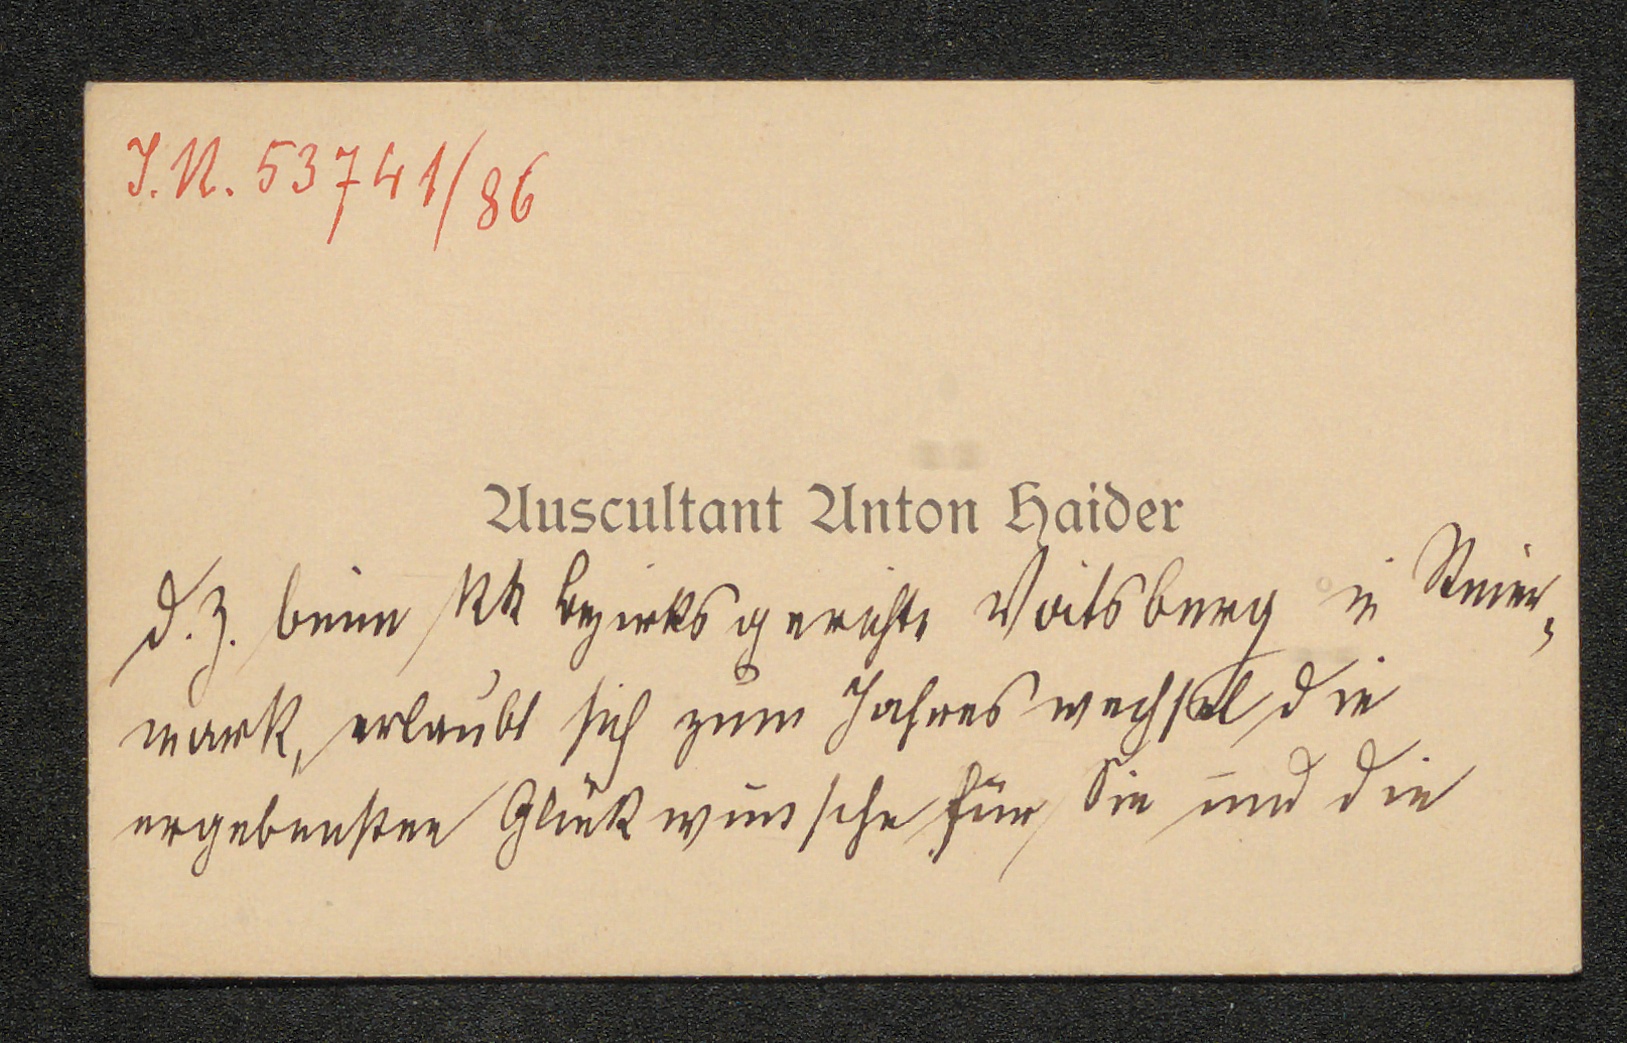 J.N. 53741/86
Auscultant Anton Haider
d. Z. beim kk Bezirksgerichte Voitsberg in Steier-
mark, erlaubt sich zum Jahreswechsel die
ergebensten Glückwünsche für Sie und die